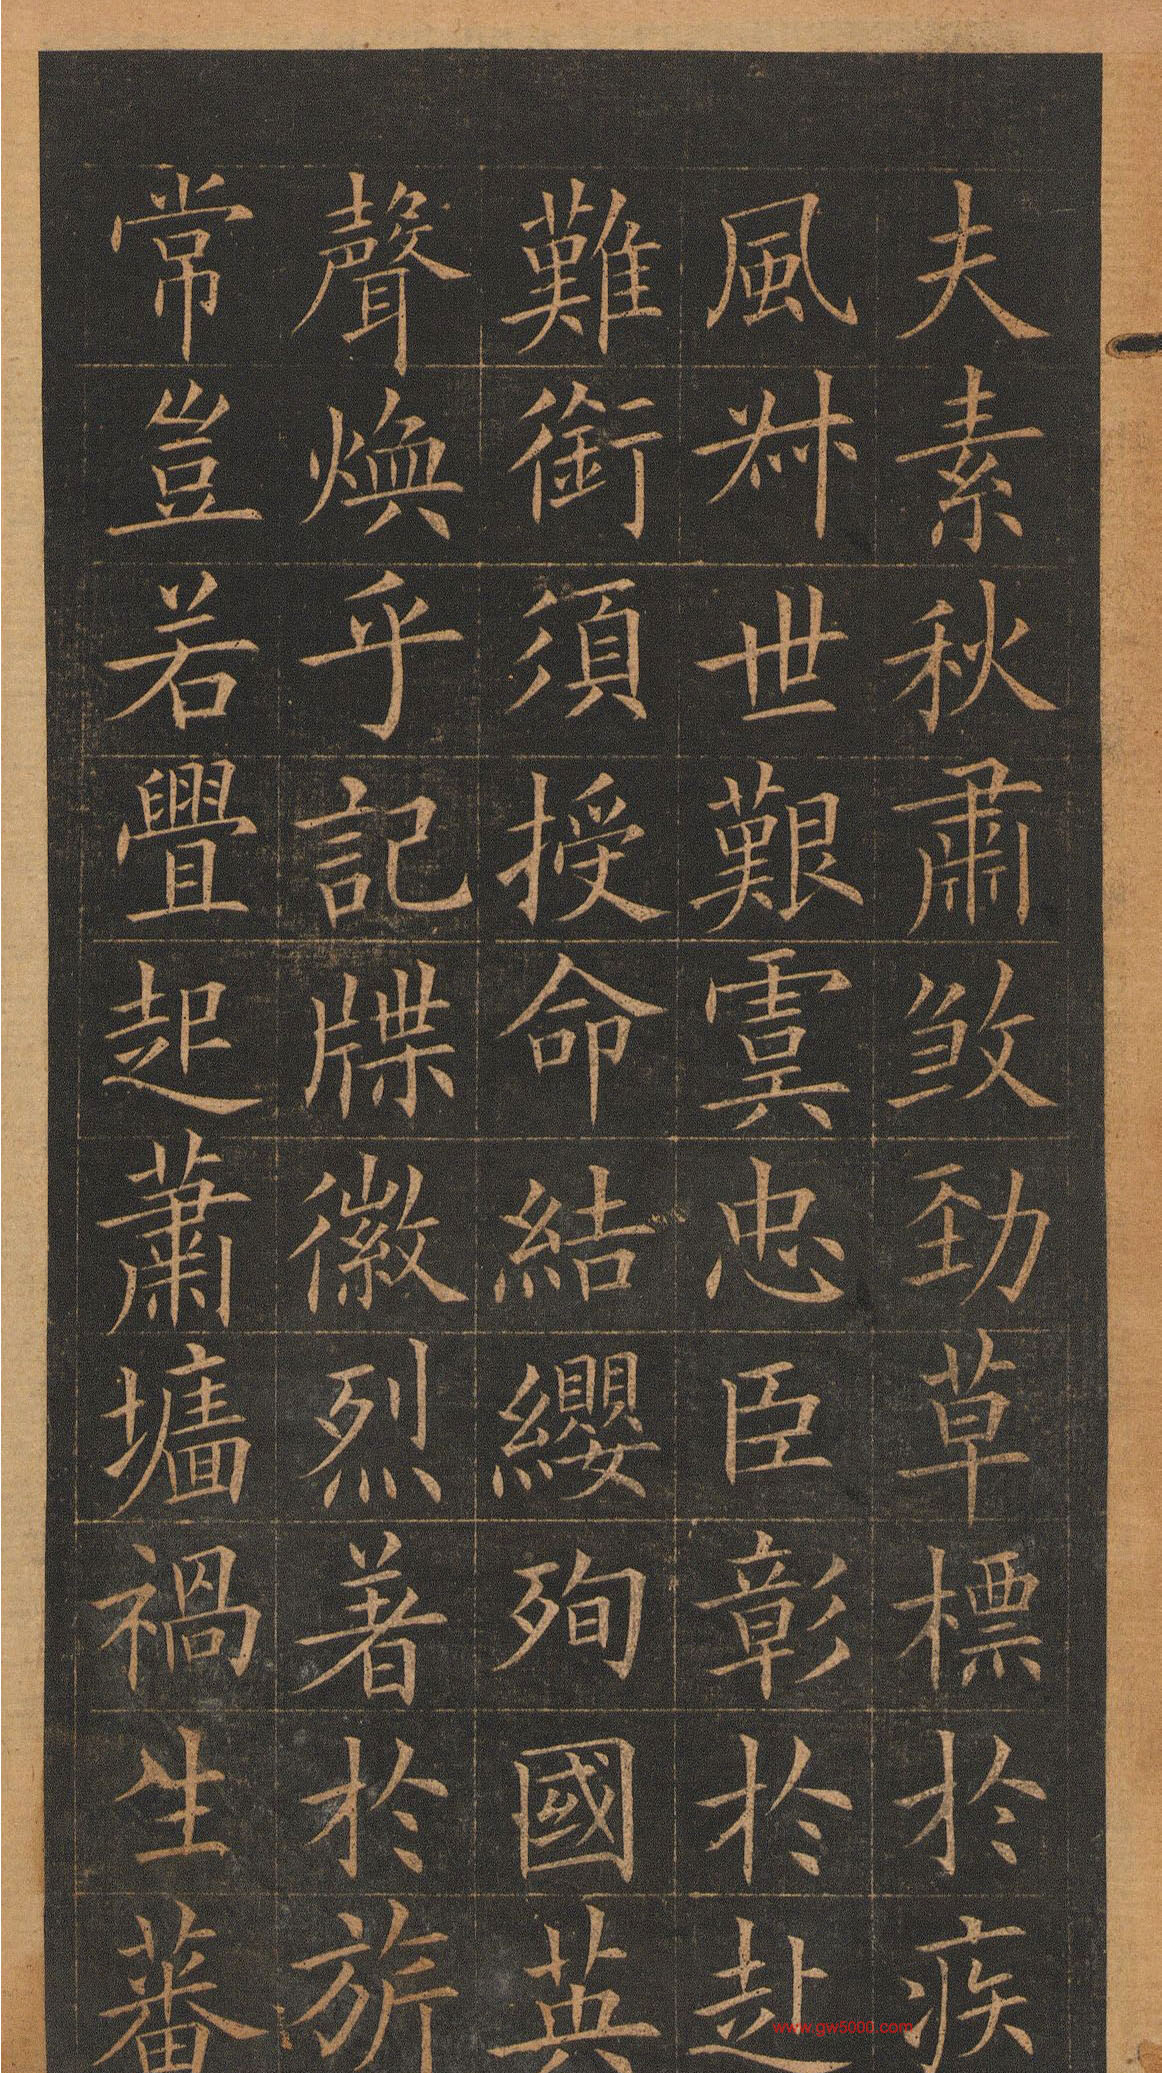 夫素秋肅煞勁草標於疾
風叔世艱虞忠臣彰於赴
難銜須授命結纓殉國英
聲煥乎記牒徽烈著於旂
常豈若舋起蕭墻禍生蕃
www.gw5000.com